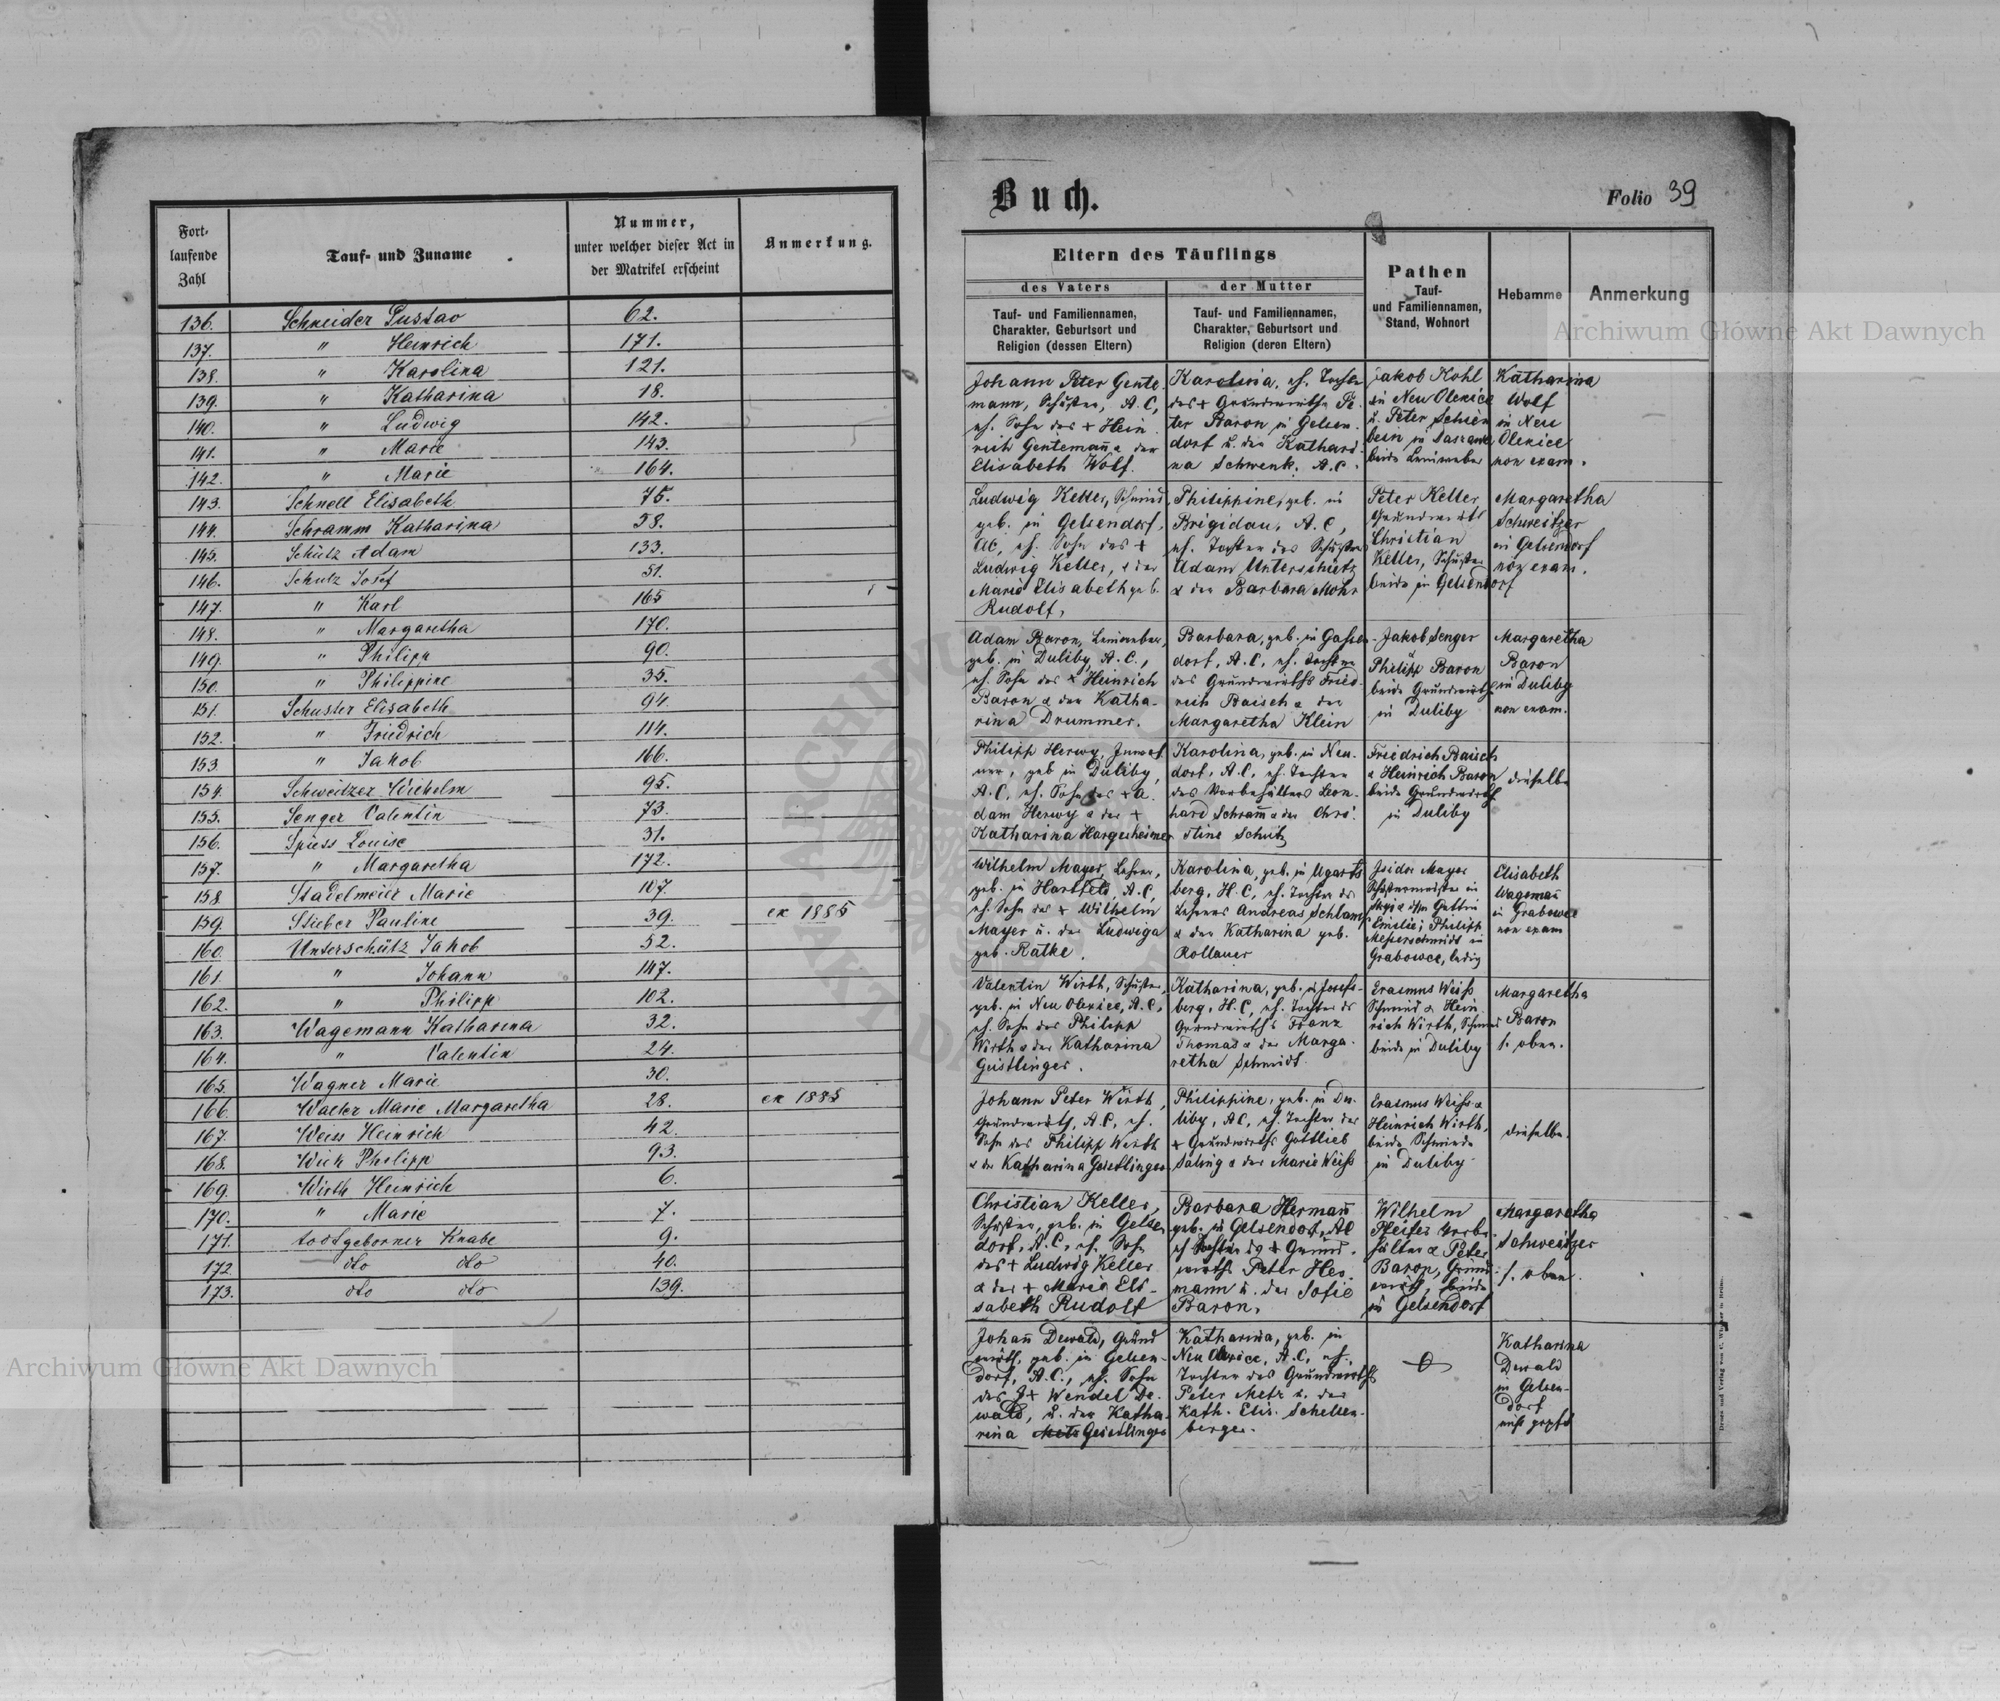 Fort-
laufende
Zahl
Tauf- und Zuname
Nummer,
unter welcher dieser Act in
der Matrikel erscheint
Anmerkung.
136. Schneider Gustav 62.
137. " Heinrich 171.
138. " Karolina 121.
139. " Katharina 18.
140. " Ludwig 142.
141. " Marie 143.
142. " Marie 164.
143. Schnell Elisabeth 76.
144. Schramm Katharina 58.
145. Schütz Adam 133.
146. Schulz Josef 51.
147. " Karl 165
148. " Margaretha 170.
149. " Philipp 90.
150. " Philippine 35.
151. Schuster Elisabeth 94.
152. " Friedrich 114.
153. " Jakob 166.
154. Schweitzer Wilhelm 95.
155. Senger Valentin 73.
156. Spiess Louise 31.
157. " Margaretha 172.
158. Stadelmeier Marie 107.
159. Stieber Pauline 39. ex 1885
160. Unterschütz Jakob 52.
161. " Johann 147.
162. " Philipp 102.
163. Wagemann Katharina 32.
164. " Valentin 24.
165. Wagner Marie 30.
166. Walter Marie Margaretha 28. ex 1885
167. Weiss Heinrich 42.
168. Wick Philipp 93.
169. Wirth Heinrich 6.
170. " Marie 7.
171. todtgeborner Knabe 9.
172. dto dto 40.
173. dto dto 139.
Buch.
Folio 39
Eltern des Täuflings
des Vaters
der Mutter
Tauf- und Familiennamen,
Charakter, Geburtsort und
Religion (dessen Eltern)
Tauf- und Familiennamen,
Charakter, Geburtsort und
Religion (deren Eltern)
Pathen
Tauf-
und Familiennamen,
Stand, Wohnort
Hebamme
Anmerkung
Johann Peter Gente-
mann, Schuster, A.C,
eh. Sohn des + Hein
rich Gentemann & der
Elisabeth Wolf.
Karolina, eh. Tochter
des + Grundwirths Pe-
ter Baron in Gelsen-
dorf u. der Kathari-
na Schwenk. A.C.
Jakob Kohl
in Neu Olexice
u. Peter Schien
bein in
beide Leinweber
Katharina
Wolf
in Neu
Olexice
non exam.
Ludwig Keller, Schmied
geb. in Gelsendorf,
AC, eh. Sohn des +
Ludwig Keller, & der
Marie Elisabeth geb.
Rudolf,
Philippine, geb. in
Brigidau, A.C,
eh. Tochter des Schusters
Adam Unterschütz
& der Barbara Mohr
Peter Keller
Grundwirth
Christian
Keller, Schuster
beide in Gelsendorf
Margaretha
Schweitzer
in Gelsendorf
non exam.
Adam Baron, Leinweber,
geb. in Duliby, A.C.,
eh. Sohn des + Heinrich
Baron & der Katha-
rina Drummer.
Barbara, geb. in Gassen-
dorf, A.C, eh. Tochter
des Grundwirths Fried-
rich Baisch & der
Margaretha Klein
Jakob Senger
&
Philipp Baron
beide Grundwirthe
in Duliby
Margaretha
Baron
in Duliby
non exam.
Philipp Herwy, Inwoh
ner, geb in Duliby,
A.C, eh. Sohn des + A
dam Herwy & der +
Katharina Hargesheimer
Karolina, geb. in Neu-
dorf, A.C, eh. Tochter
des Vorbehälters Leon-
hard Schram & der Chri-
stine Schutz
Friedrich Baisch
& Heinrich Baron
beide Grundwirthe
in Duliby
dieselbe
Wilhelm Mayer, Lehrer,
geb. in Hartfeld A.C,
eh. Sohn des + Wilhelm
Mayer u. der Ludwiga
geb. Ratke.
Karolina, geb. in Ugarts
berg, H.C, eh. Tochter des
Lehrers Andreas Schlamp
& der Katharina geb.
Rollauer
Isidor Mayer
in
Gattin
Emilie; Philipp
Messerschmidt in
Grabowce, ledig
Elisabeth
Wageman
in Grabowce
non exam
Valentin Wirth, Schuster,
geb. in Neu Olexice, A.C,
eh. Sohn des Philipp
Wirth & der Katharina
Geistlinger.
Katharina, geb. in Josefs-
berg, H.C, eh. Tochter des
Grundwirths Franz
Thomas & der Marga-
retha Schmidt
Erasmus Weiss
Schmied & Hein
rich Wirth, Schmied
beide in Duliby
Margaretha
Baron
s. oben.
Johann Peter Wirth,
Grundwirth, A.C, eh.
Sohn des Philipp Wirth
& der Katharina Geistlinger
Philippine, geb. in Du-
liby, A.C, eh. Tochter des
+ Grundwirths Gottlieb
Salwig & der Marie Weiss
Erasmus Weiss &
Heinrich Wirth,
beide Schmiede
in Duliby
dieselbe.
Christian Keller,
Schuster, geb. in Gelsen
dorf, A.C, eh. Sohn
des + Ludwig Keller
& der + Marie Eli-
sabeth Rudolf
Barbara Hermann
geb. in Gelsendorf, AC
eh Tochter des + Grund-
wirths Peter Her
mann u. der Sofie
Baron,
Wilhelm
Pfeifer Vorbe
hälter & Peter
Baron, Grund-
wirth, beide
in Gelsendorf
Margaretha
Schweitzer
s. oben.
Johann Dewald, Grund
wirth, geb. in Gelsen-
dorf, A.C., eh. Sohn
des + Wendel De-
wald, u. der Katha-
rina Metz Geistlinger
Katharina, geb. in
Neu Olexice, A.C, eh.
Tochter des Grundwirths
Peter Metz u. der
Kath. Elis. Schellen-
berger.
Katharina
Dewald
in Gelsen-
dorf
nicht geprft
Druck und Verlag von C. Winiker in Brünn.
Archiwum Główne Akt Dawnych
Archiwum Główne Akt Dawnych